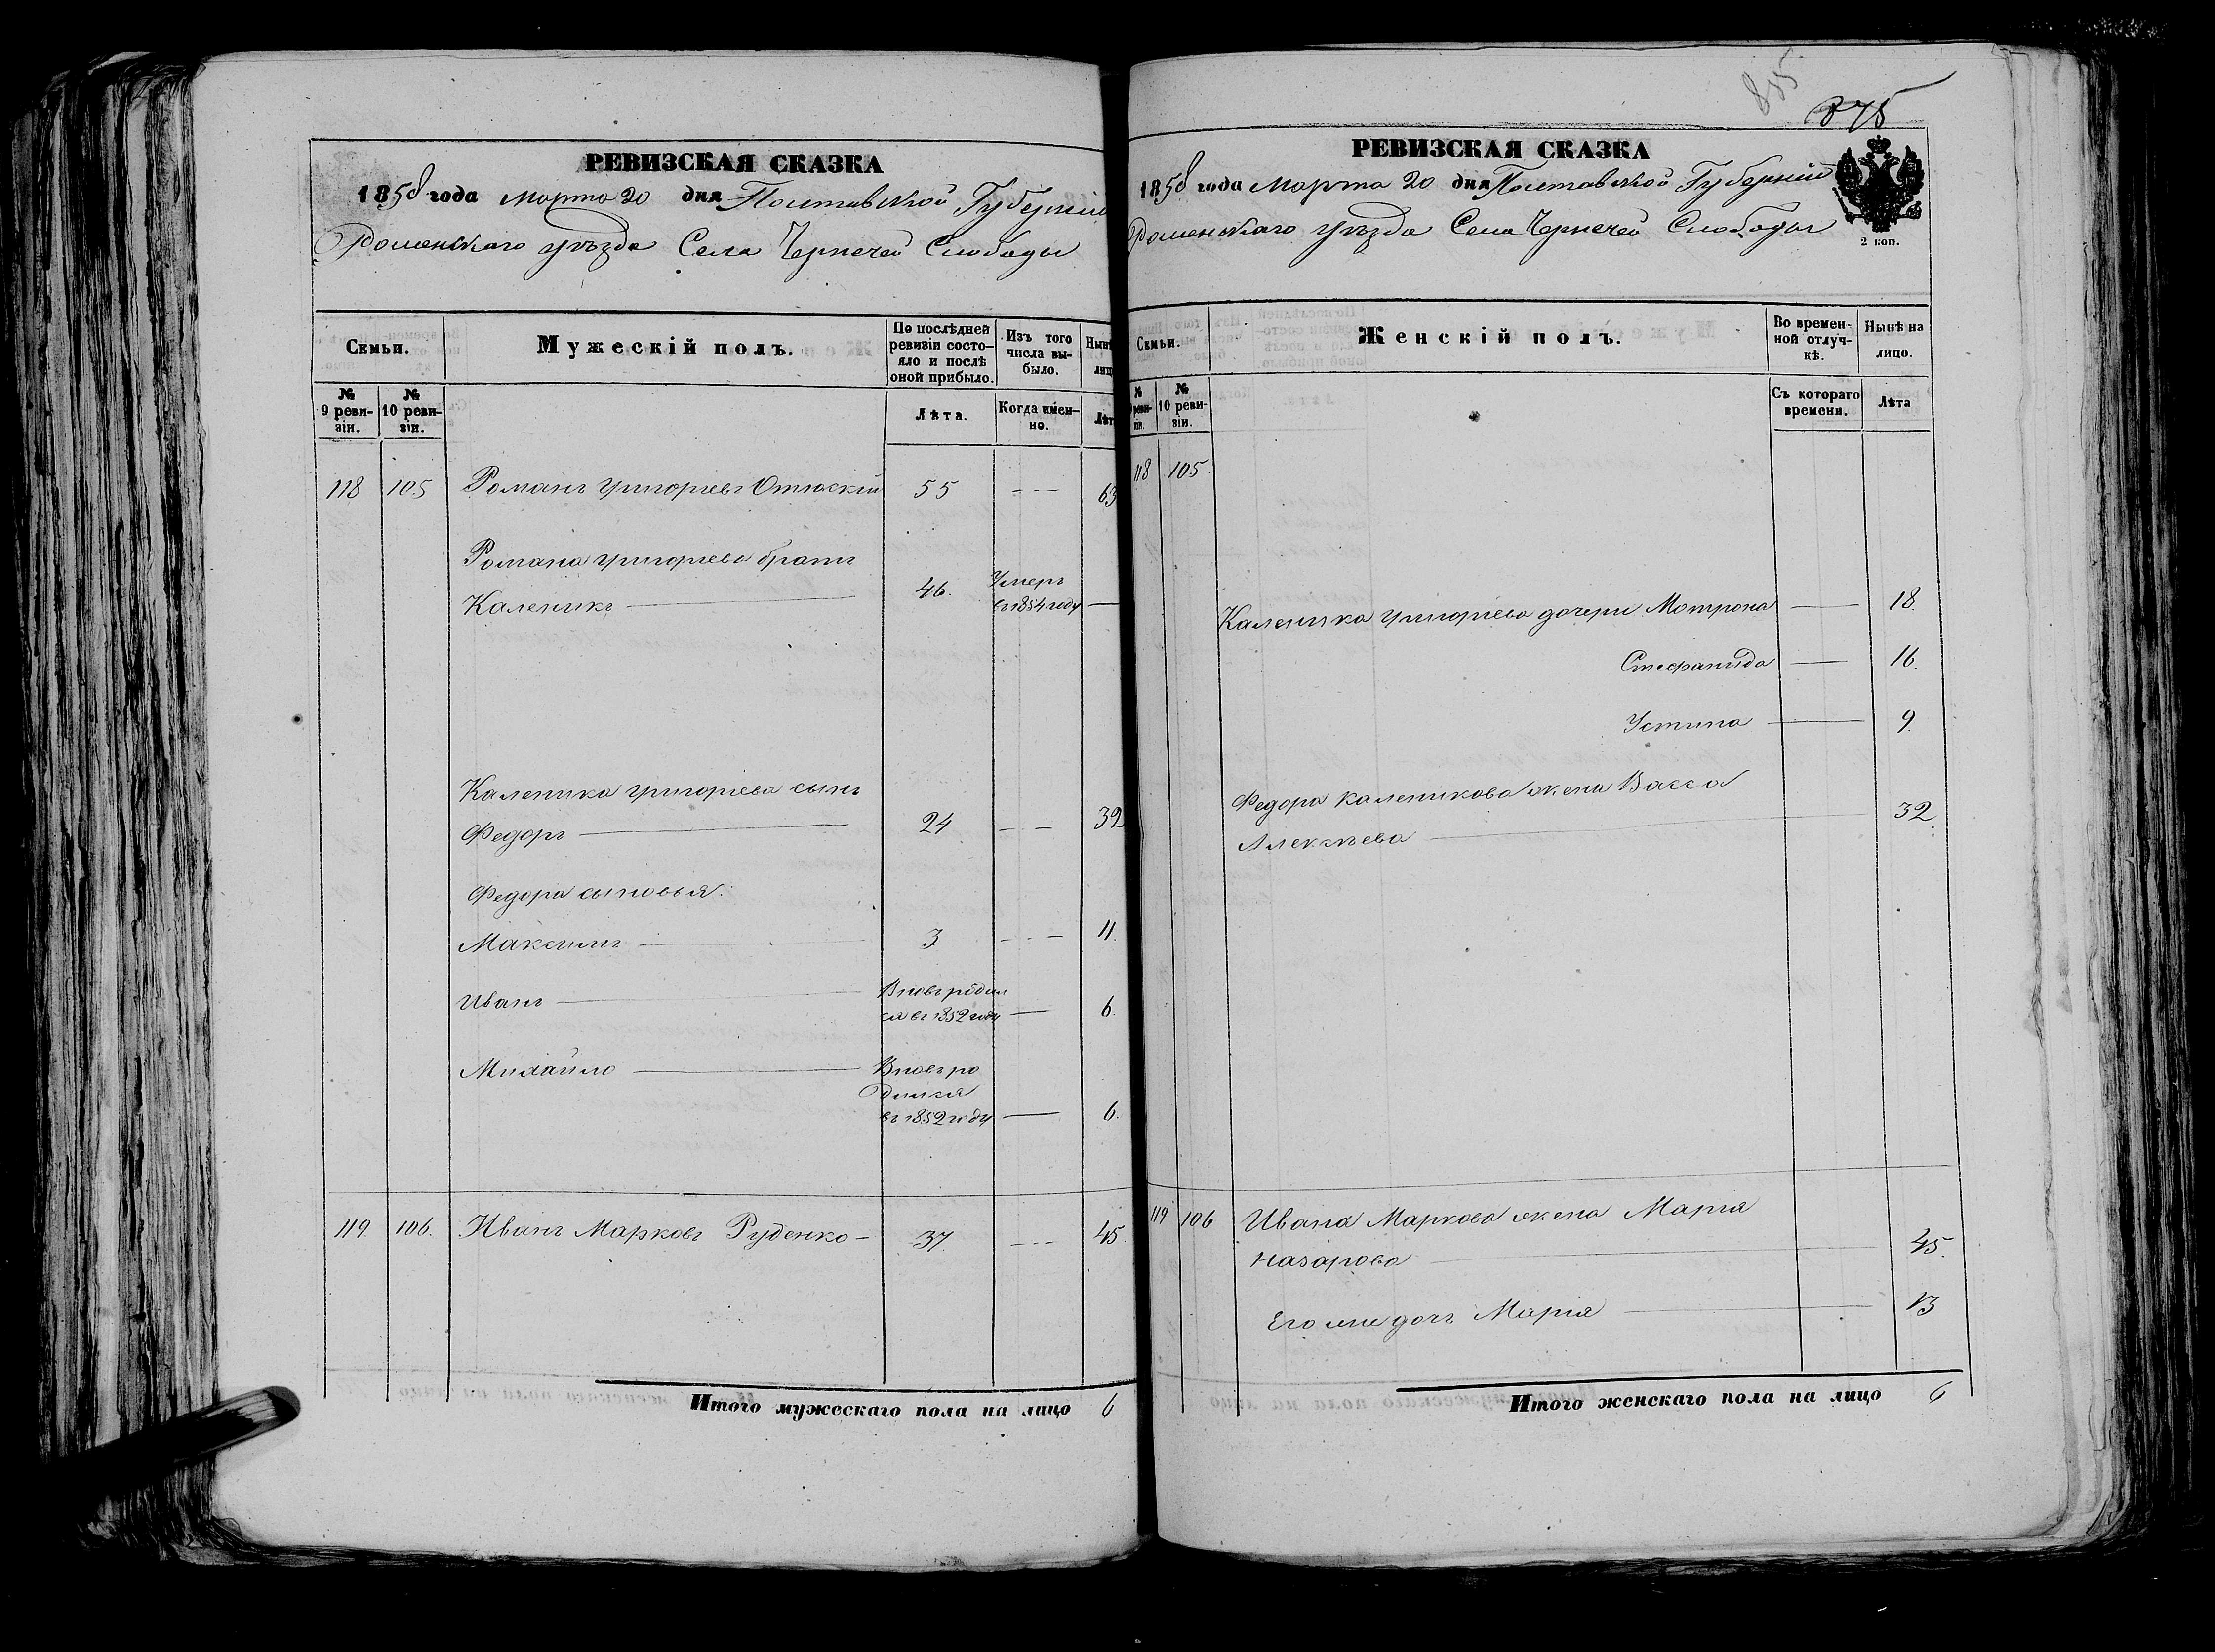 РЕВИЗСКАЯ СКАЗКА
1858 года Марта 20 дня Полтавской Губерніи
Роменскаго уѣзда Села Чернечей Слободы
Семьи.
Мужескій полъ.
По послѣдней ревизіи состояло и послѣ оной прибыло.
Изъ того числа выбыло.
№ 9 ревизіи.
№ 10 ревизіи.
Лѣта.
Когда именно.
118 105 Романъ Григорьевъ 55 - - - 63
Романа Григорьева братъ
Каленикъ 46. Умеръ въ 1854 году
Каленика Григорьева сынъ
Федоръ 24 - - 32
Федора сыновья:
Максимъ 3 - - - 11.
Иванъ Вновь родился въ 1852 году 6.
Михайло Вновь родился въ 1852 году 6.
119. 106. Иванъ Марковъ Руденко 37 - - - 45.
Итого мужескаго пола на лицо 6
875
РЕВИЗСКАЯ СКАЗКА
1858 года Марта 20 дня Полтавской Губерніи
Роменскаго уѣзда Села Чернечей Слободы
2 коп.
Семьи.
Женскій полъ.
Во временной отлучкѣ.
Нынѣ на лицо.
№ 10 ревизіи.
Съ котораго времени.
Лѣта
118 105.
Каленика Григорьева дочери Мотрона 18.
Стефанида 16.
Устина 9.
Федора Каленикова жена Васса
Алексѣева 32.
119 106 Ивана Маркова жена Марія
Назарова 45.
Его же дочь Марія 13
Итого женскаго пола на лицо 6